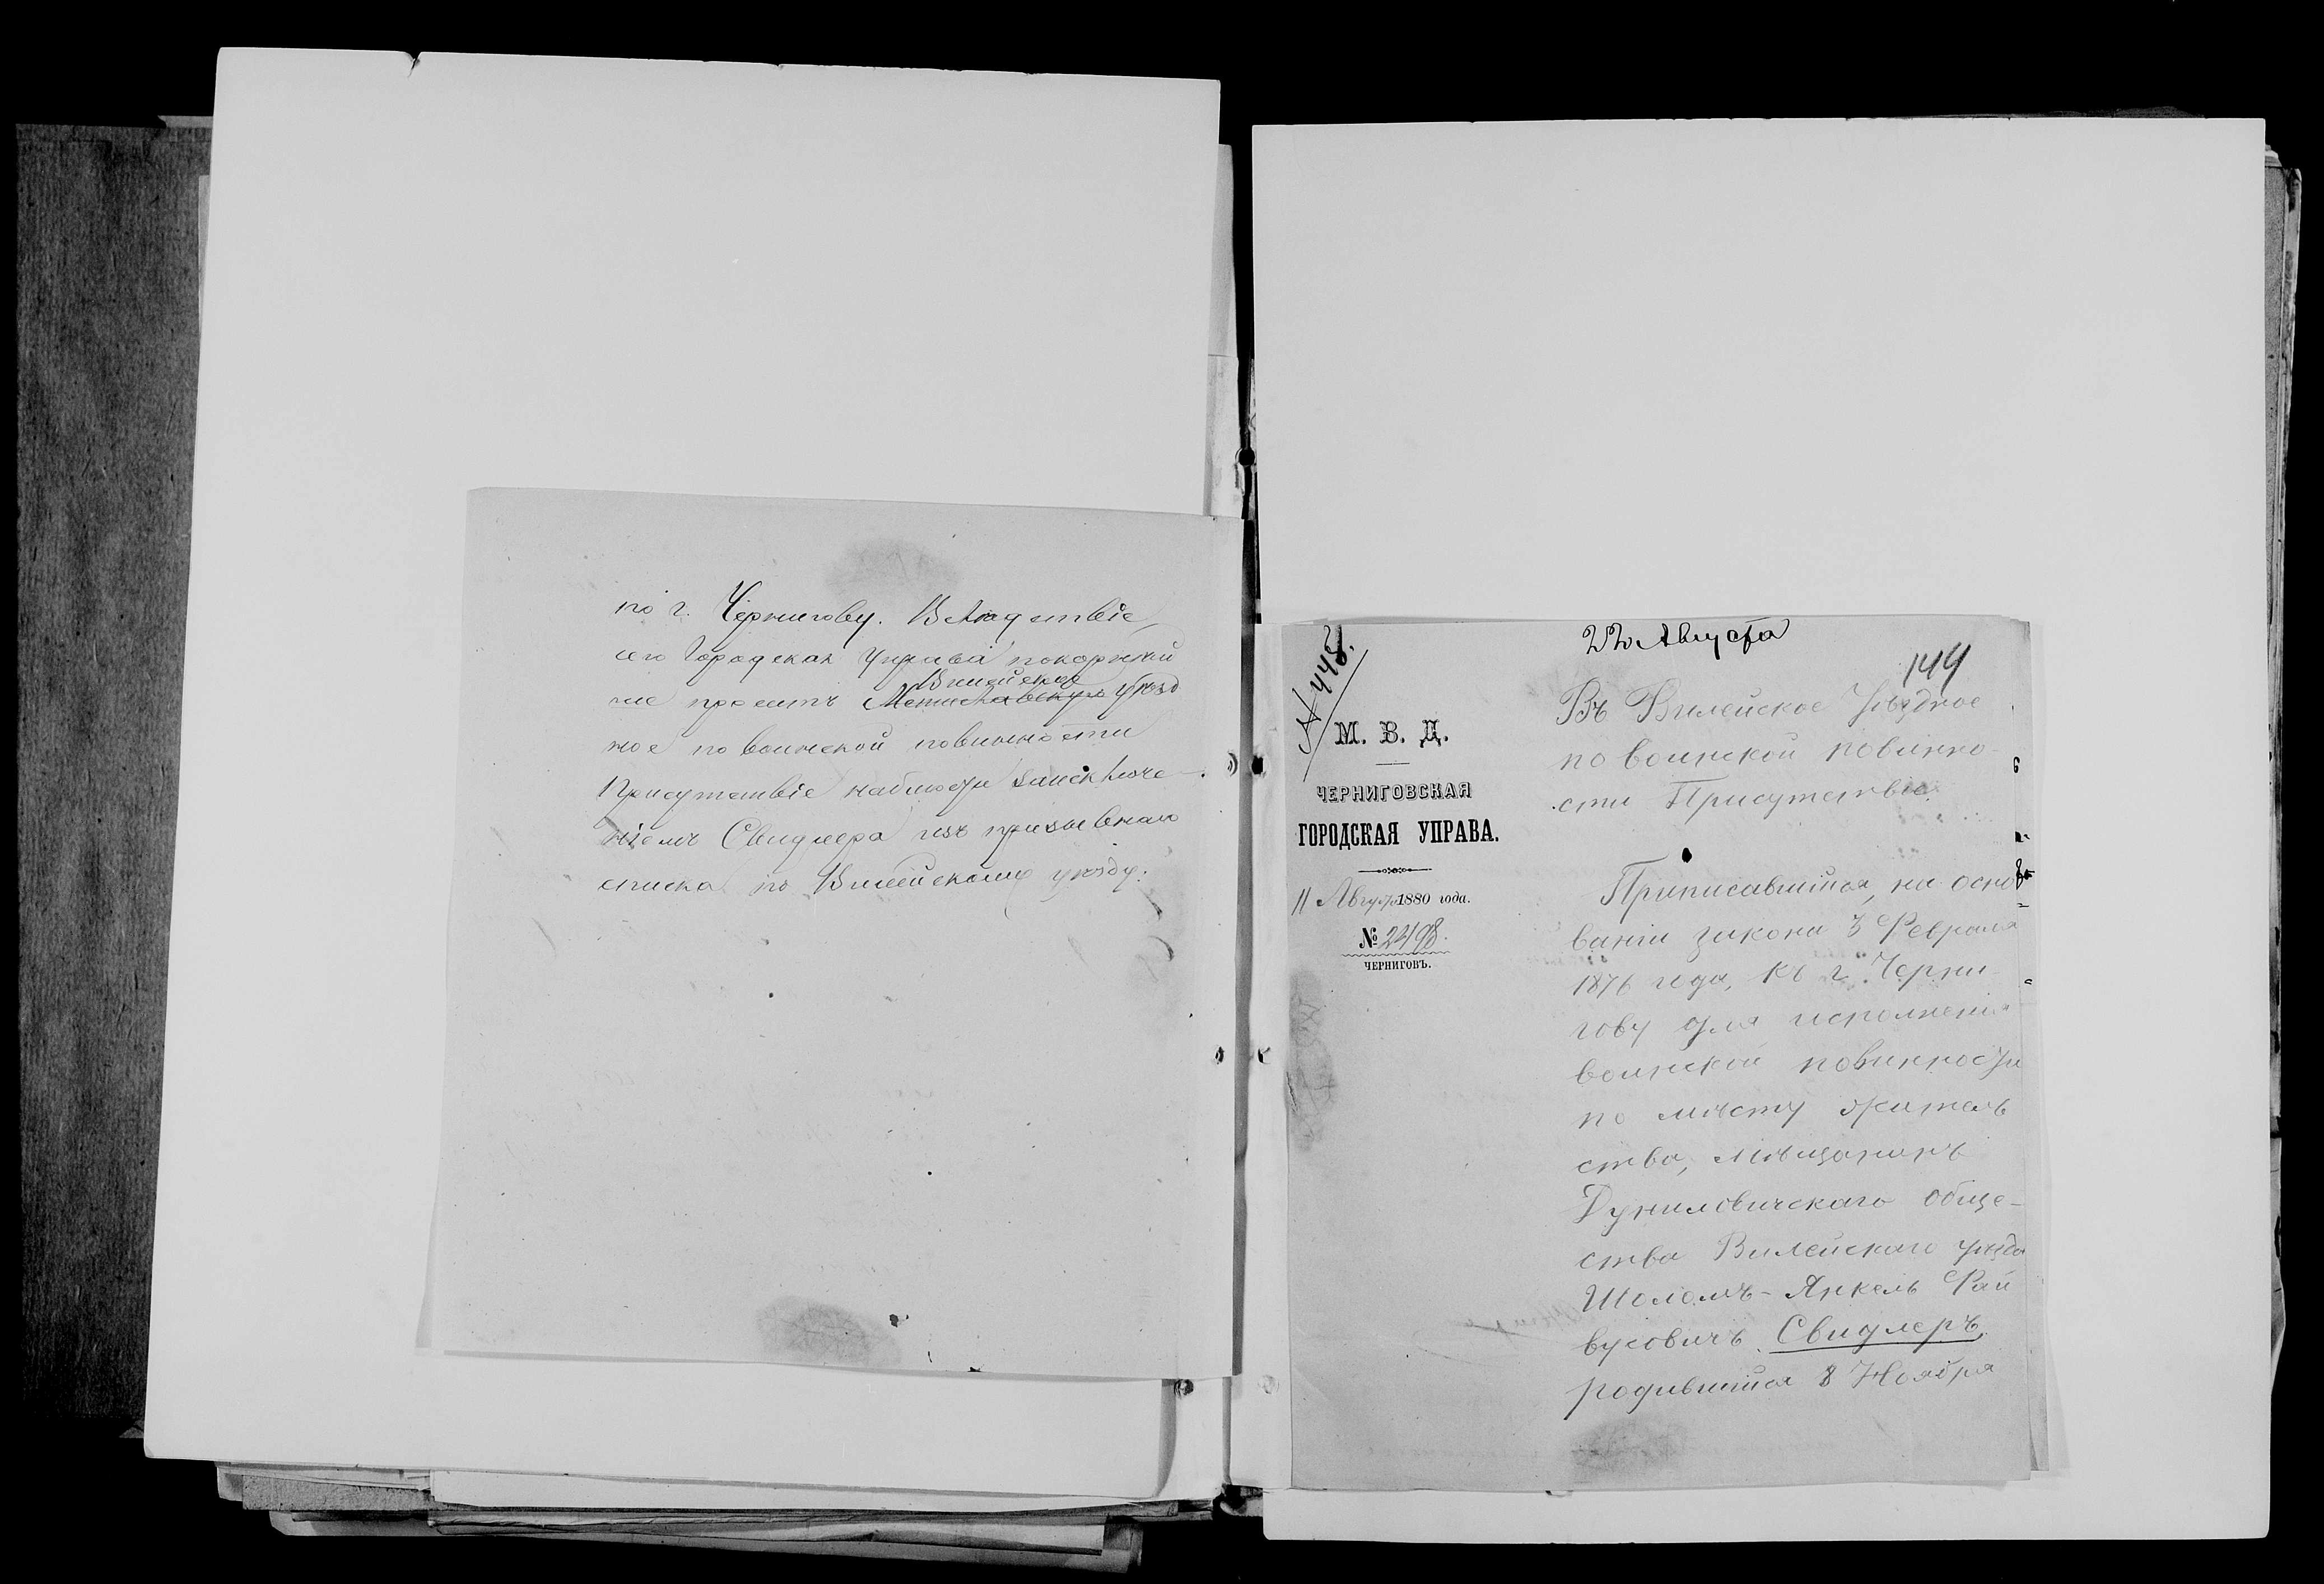 по г. Чернигову. Вслѣдствіе
сего Городская Управа покорнѣй
Вилейское
ше проситъ Мстиславское Уѣзд
ное по воинской повинности
Присутствіе наблюсти за исключе-
ніемъ Свидлера изъ призывнаго
списка по Вилейскому уѣзду.
22 Августа
144
№ 448.
М. В. Д.
ЧЕРНИГОВСКАЯ
ГОРОДСКАЯ УПРАВА.
11 Августа 1880 года.
№ 2498.
ЧЕРНИГОВЪ.
Въ Вилейское Уѣздное
по воинской повинно-
сти Присутствіе
Приписавшійся, на осно
ваніи закона 3 Февраля
1876 года, къ г. Черни-
гову для исполненія
воинской повинности
по мѣсту житель
ства, мѣщанинъ
Дуниловичскаго обще-
ства Вилейскаго уѣзда
Шоломъ-Янкель Фай
вусовичъ Свидлеръ,
родившійся 8 Ноября